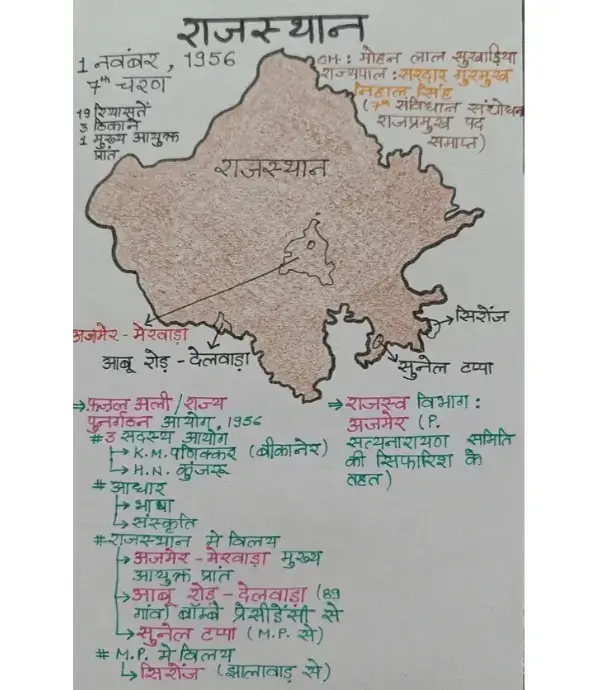 राजस्थान
1 नवंबर, 1956
7th चरण
19 रियासतें
3 ठिकाने
1 मुख्य आयुक्त
प्रांत
CM: मोहन लाल सुखाड़िया
राज्यपाल: सरदार गुरुमुख
निहाल सिंह
(7th संविधान संशोधन
राजप्रमुख पद
समाप्त)
राजस्थान
अजमेर-मेरवाड़ा
आबू रोड़ - देलवाड़ा
सिरोंज
सुनेल टप्पा
→ फ़जल अली/राज्य
पुनर्गठन आयोग, 1956
#3 सदस्य आयोग
→ K.M. पणिक्कर (बीकानेर)
→ H.N. कुंजरू
# आधार
→ भाषा
→ संस्कृति
# राजस्थान मे विलय
→ अजमेर-मेरवाड़ा मुख्य
आयुक्त प्रांत
→ आबू रोड़ - देलवाड़ा (89
गांव) बॉम्बे प्रेसीडेंसी से
→ सुनेल टप्पा (M.P. से)
# M.P. मे विलय
→ सिरोंज (झालावाड़ से)
→ राजस्व विभाग:
अजमेर (P.
सत्यनारायण समिति
की सिफारिश के
तहत)